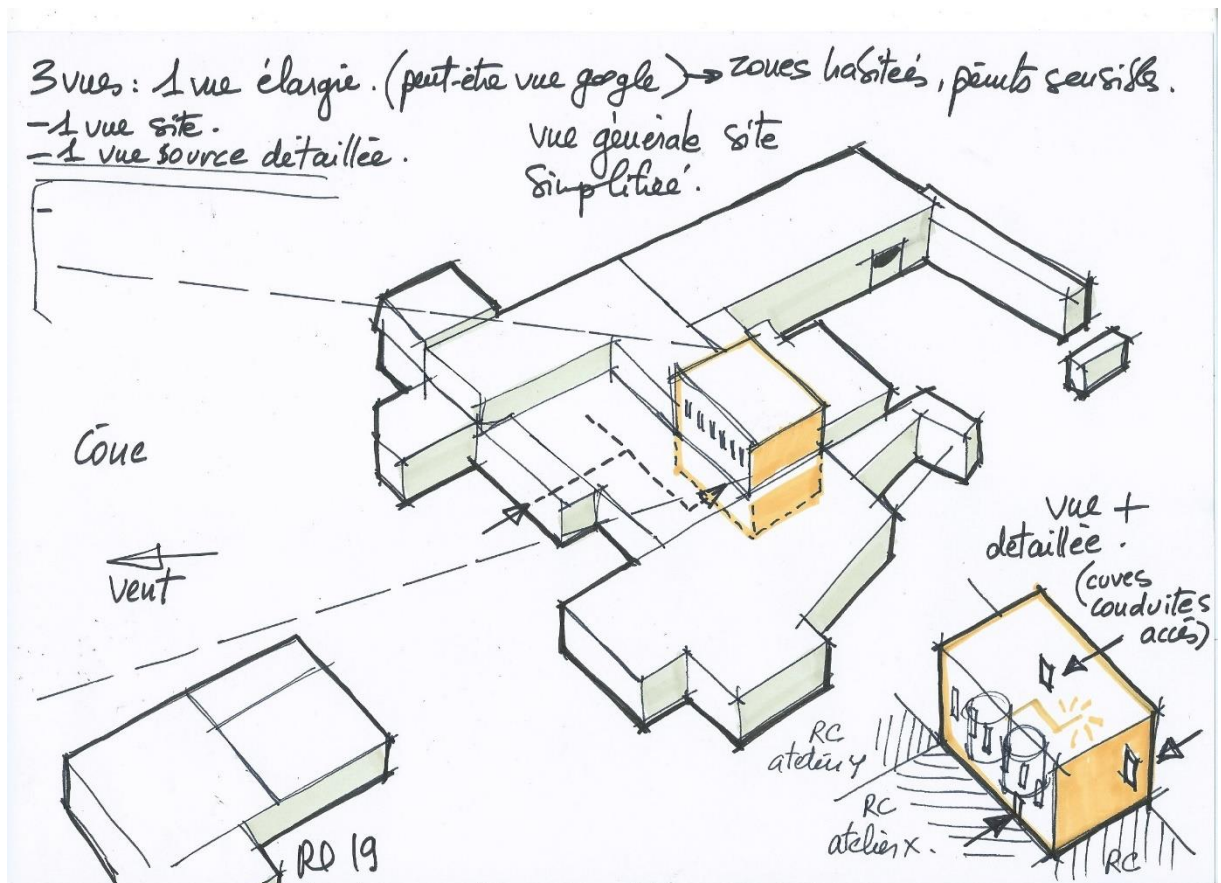 3 vues : 1 vue élargie. (peut-être vue google) → zones habitées, points sensibles.
- 1 vue site.
- 1 vue source détaillée.
vue générale site
simplifiée.
Cône
vent
vue +
détaillée.
(cuves
conduites
accès)
RC
atelier y
RC
atelier x.
RC
RD 19